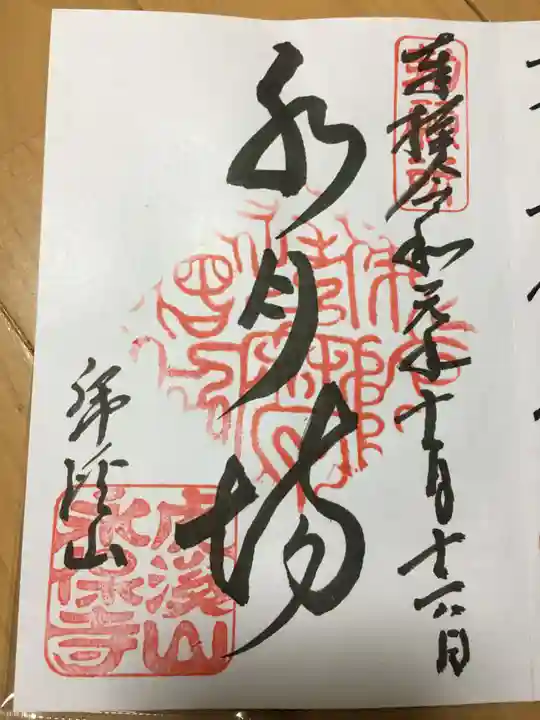 奉拝 令和元年十一月十六日
水月場
虎渓山
虎溪山
永保寺